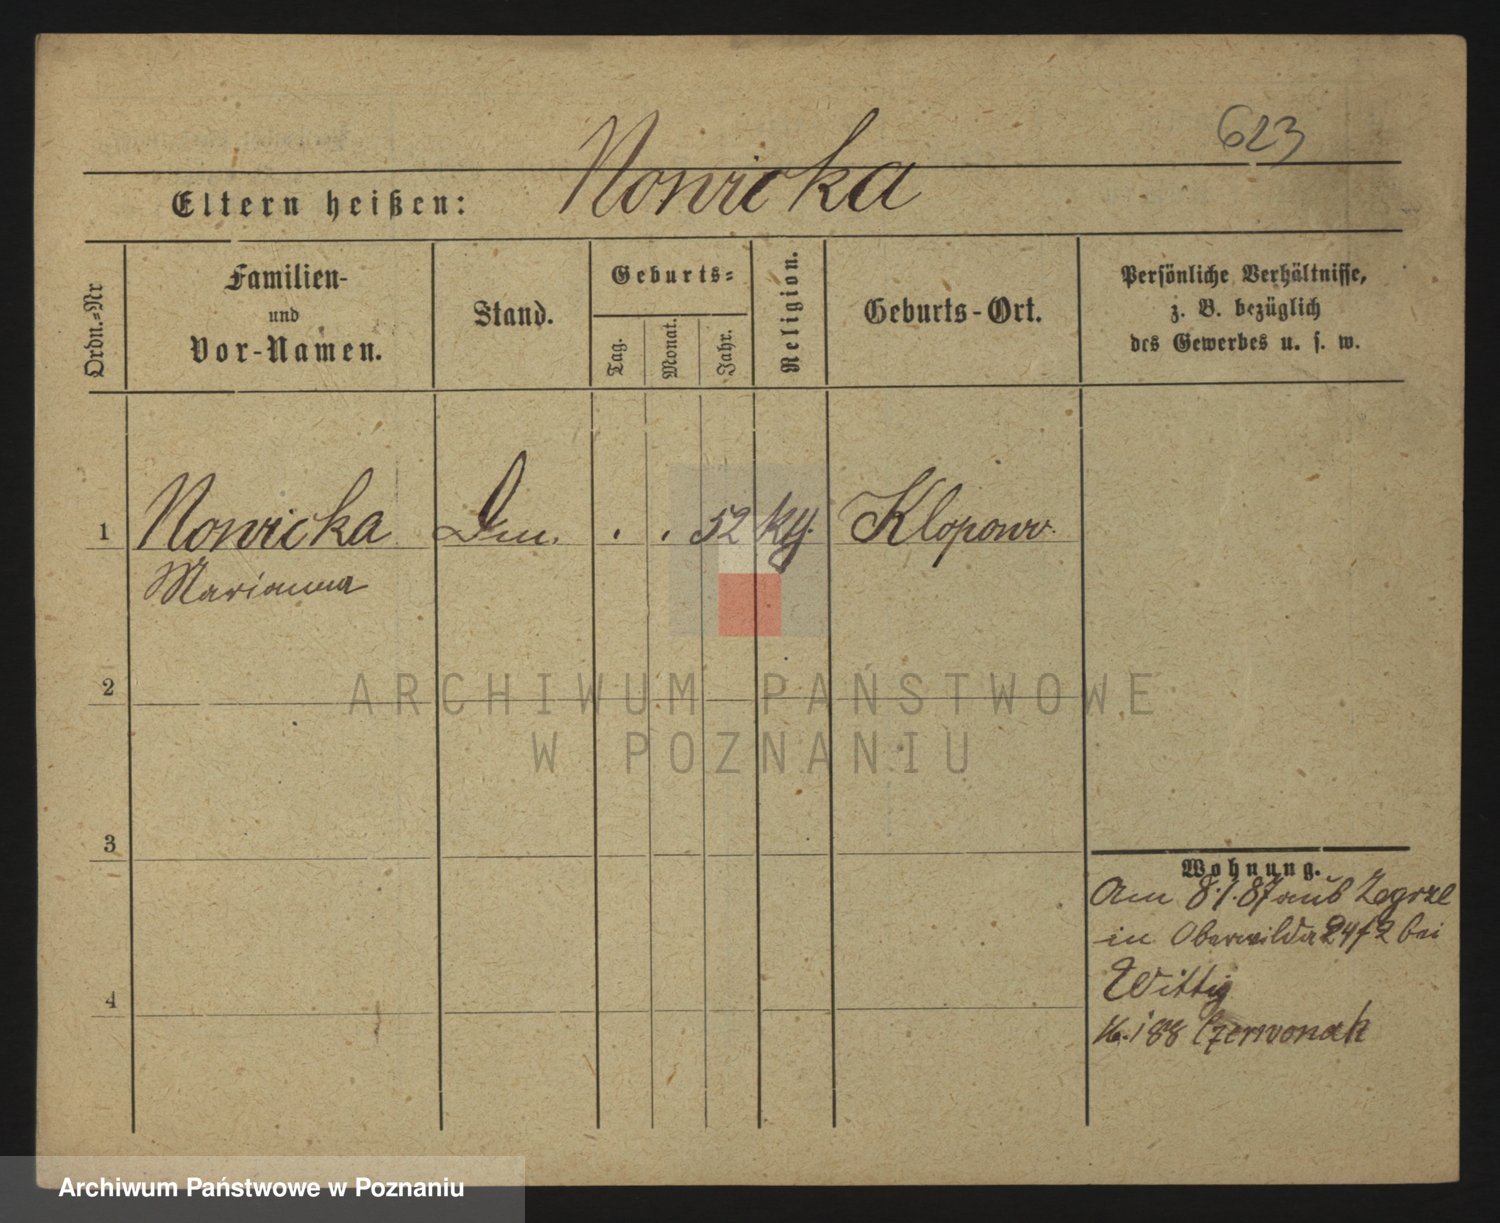 Nowicka
623
Eltern heißen:
Ordn.-Nr
Familien-
und
Vor-Namen.
Stand.
Geburts-
Tag.
Monat.
Jahr.
Religion.
Geburts-Ort.
Persönliche Verhältnisse,
z. B. bezüglich
des Gewerbes u. s. w.
1 Nowicka . . 52 Klopow.
Marianna
ARCHIWUM PAŃSTWOWE
W POZNANIU
2
3
4
Wohnung.
Am 8.1.87 aus Zegrze
in Oberwilda 24 bei
Wittig
88 Czerwonak
Archiwum Państwowe w Poznaniu